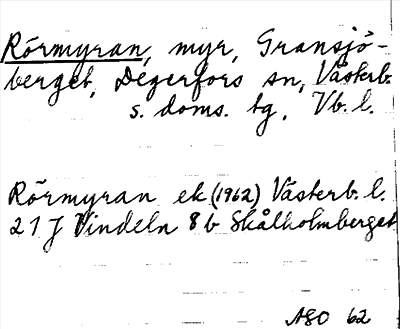 Rörmyran, myr, Gransjö-
berget, Degerfors sn, Västerb.
s. doms. tg, Vb. l.
Rörmyran ek (1962) Västerb. l.
21 J Vindeln 8 b Skålholmberget
ASO 62